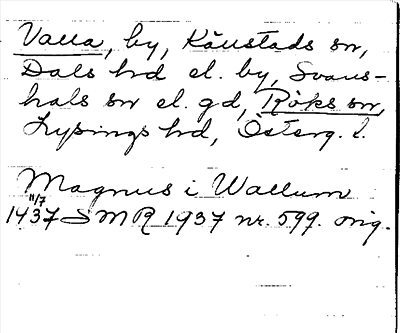 Valla, by, Källstads sn,
Dals hd el. by, Svans-
hals sn el. gd, Röks sn,
Lysings hd, Österg. l.
Magnus i Wallum
11/7
1437 SMR 1937 nr. 599. orig.